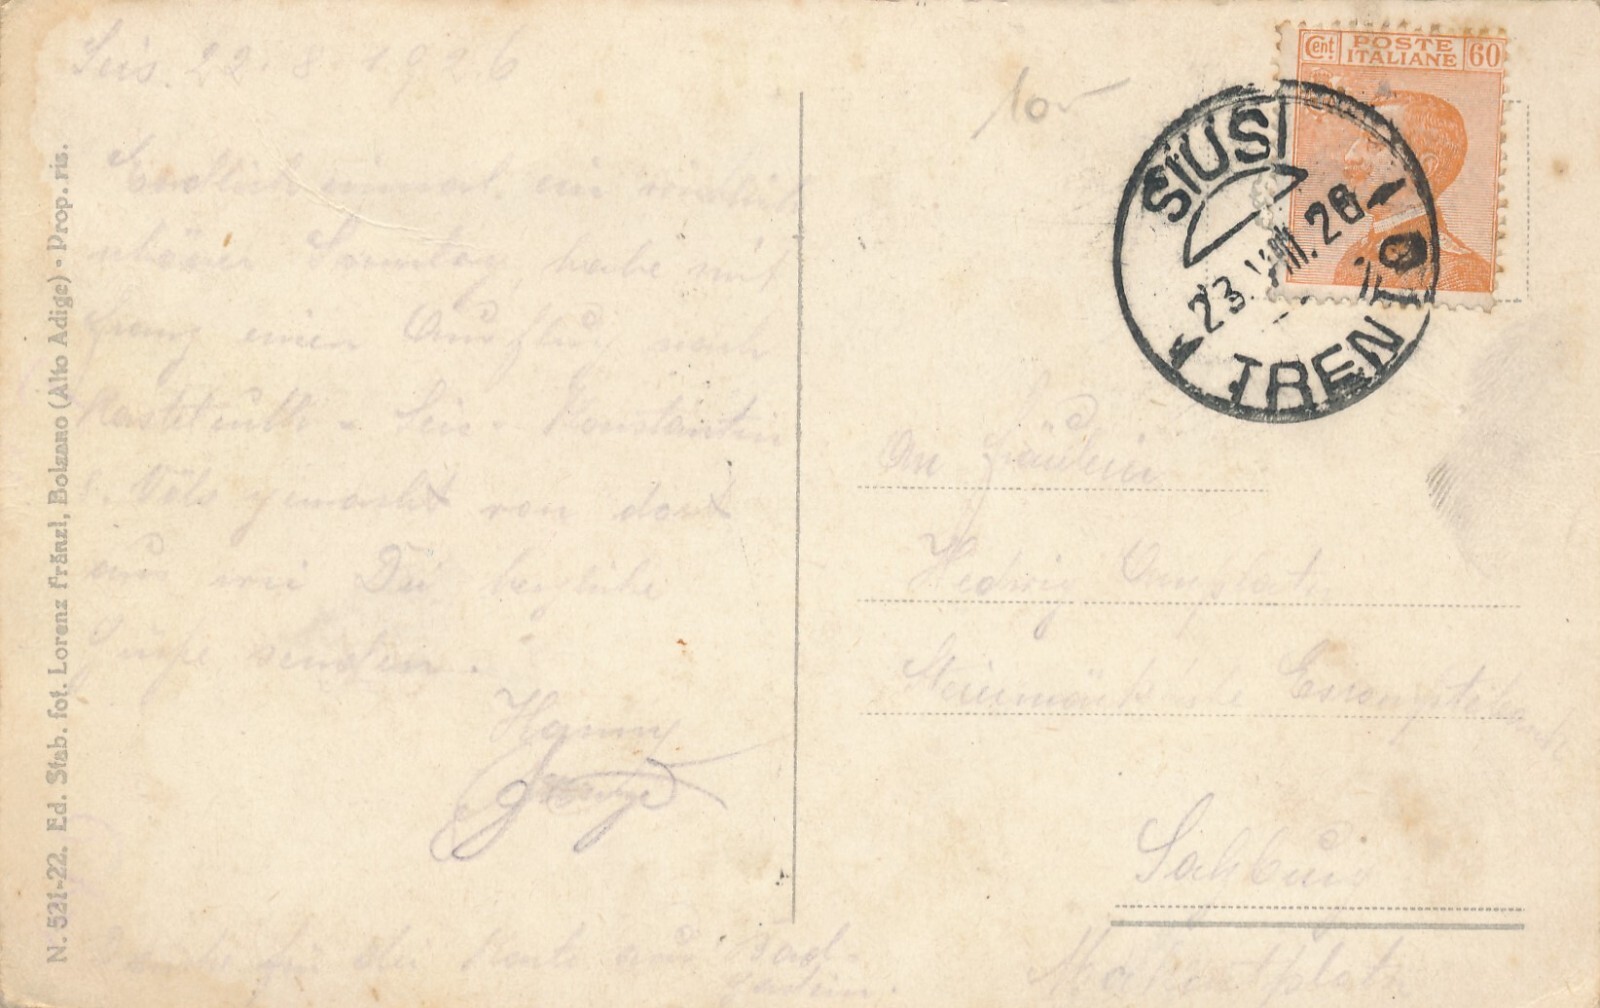 Seis. 22.8.1926
Endlich einmal ein wirklich
schöner Sonntag, habe mit
Franz einen Ausflug nach
Kastelruth - Seis - Konstantin
Völs gemacht von dort
aus wir Dir herzliche
Grüße senden.
Hanny
Danke für die Karte aus Bad-
Gastein.
N. 521-22. Ed. Stab. fot. Lorenz Fränzl, Bolzano (Alto Adige) - Prop. ris.
10
Cent. POSTE ITALIANE 60
SIUSI
23.VIII.26
TRENTO
An Fräulein
Hedwig
Steiermärkische Escomptebank
Salzburg
Makartplatz